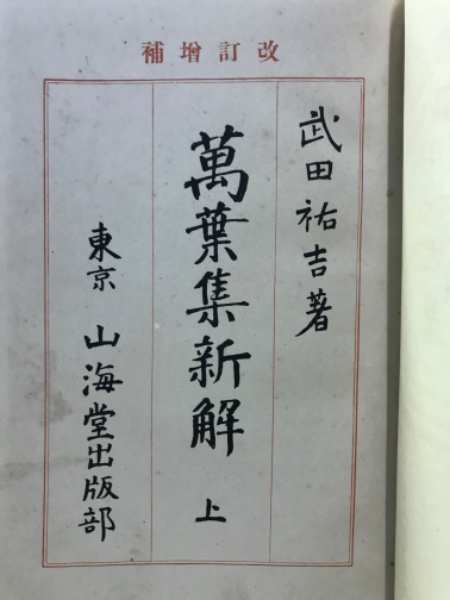 改訂増補
武田祐吉著
萬葉集新解 上
東京 山海堂出版部